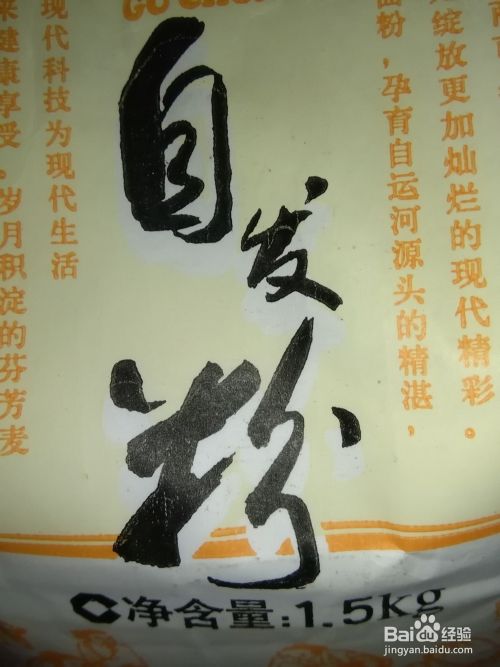 绽放更加灿烂的现代精彩。
粉，孕育自运河源头的精湛，
自发粉
现代科技为现代生活
来健康享受。岁月积淀的芬芳麦
净含量:1.5kg
Baidu经验
jingyan.baidu.com